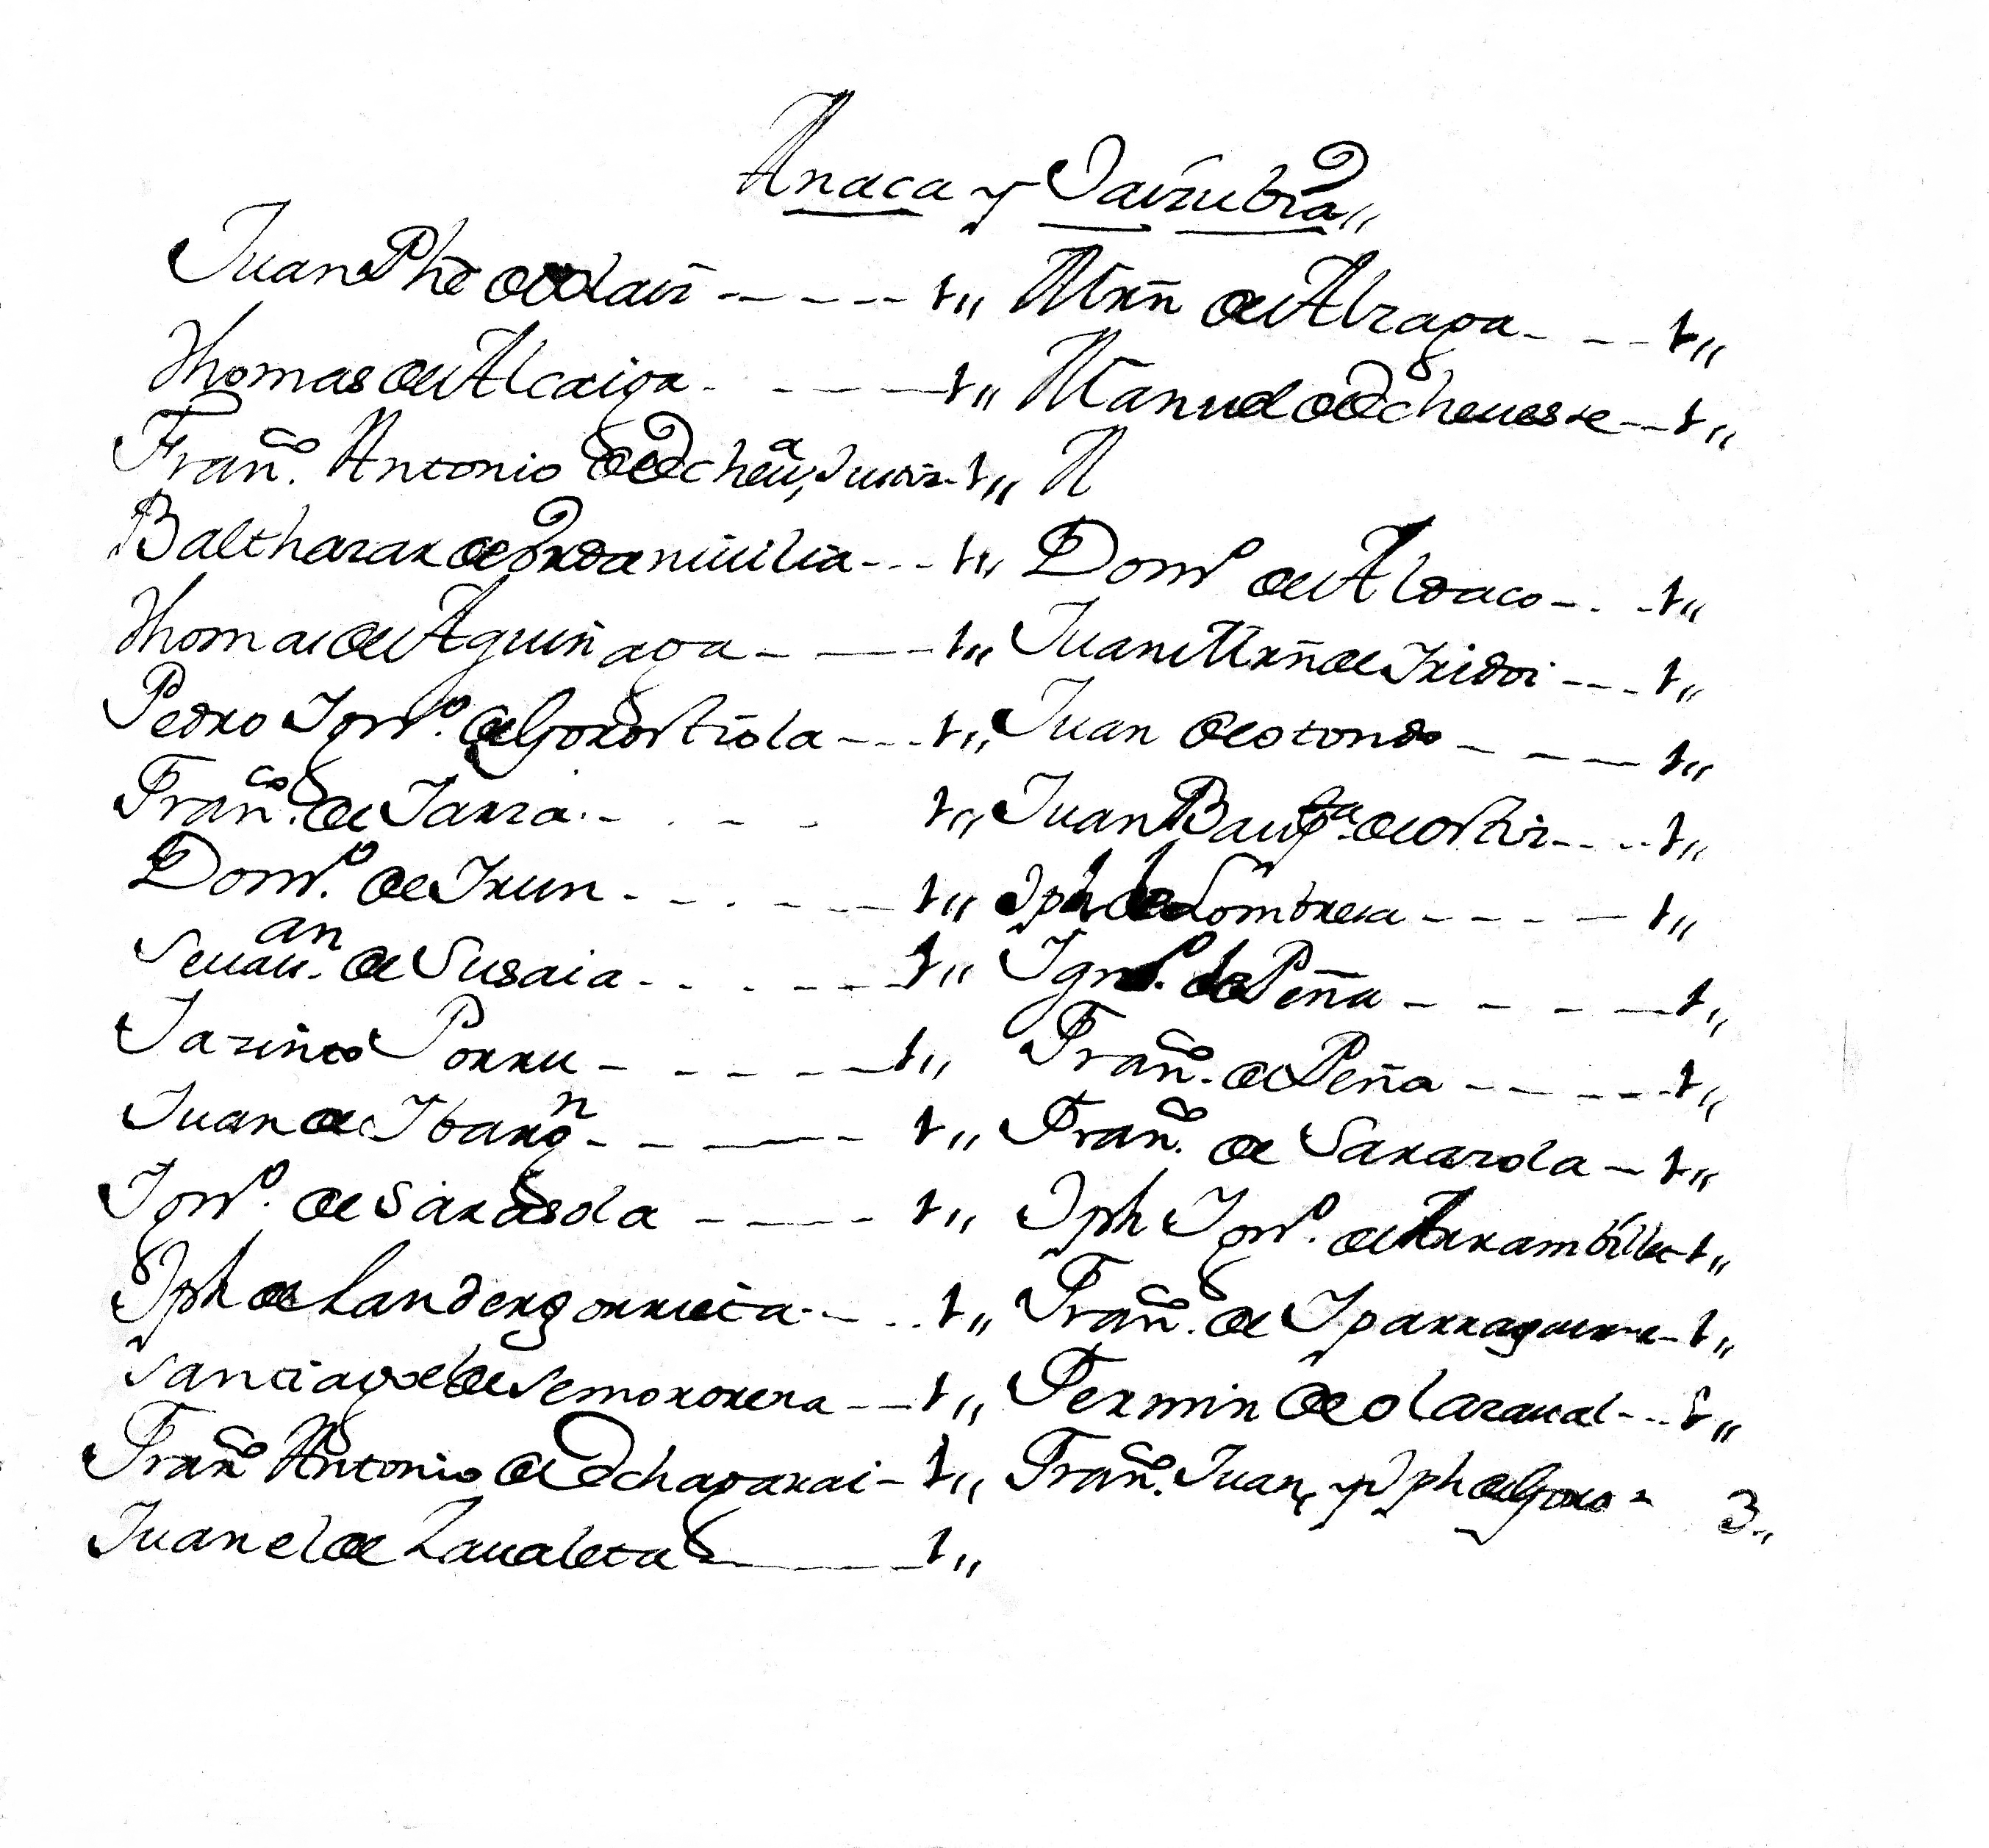 Anaca y Jaizubia
Juan Phe de Olaiz ----- 1„
Thomas de Alcaiga ---- 1„
Fran.co Antonio de Echeua, 1„
Balthazar de Urdaniuilia --- 1„
Thomas de Aguiñaga ---- 1„
Pedro Ign.o de Gorostiola --- 1„
Fran.co de Iarza ---- 1„
Dom.o de Irun ------ 1„
Seuau.an de Susaia ------ 1„
Jazinto Porru ----- 1„
Juan de Ibarg.n ---- 1„
Ign.o de Sarasola ---- 1„
Jph de Landergorrieta --- 1„
Santiago de Semororena --- 1„
Fran.co Antonio de Echagarai - 1„
Juanelo de Zaualeta ---- 1„
Mrñ de Alzaga --- 1„
Manuel de Echeueste -- 1„
Dom.o de Aldaco --- 1„
Juan Mrñ de Iridoi --- 1„
Juan de Otondo ---- 1„
Juan Baup.ta de Ortiz ---- 1„
Jph de Lombrera ---- 1„
Ign.o de Peña ---- 1„
Fran.co de Peña ----- 1„
Fran.co de Sarazola - 1„
Jph Ign.o de Arrambillet 1„
Fran.co de Iparraguirre - 1„
Fermin de Olazaual --- 1„
Fran.co Juan, y Jph de Goro - 3„